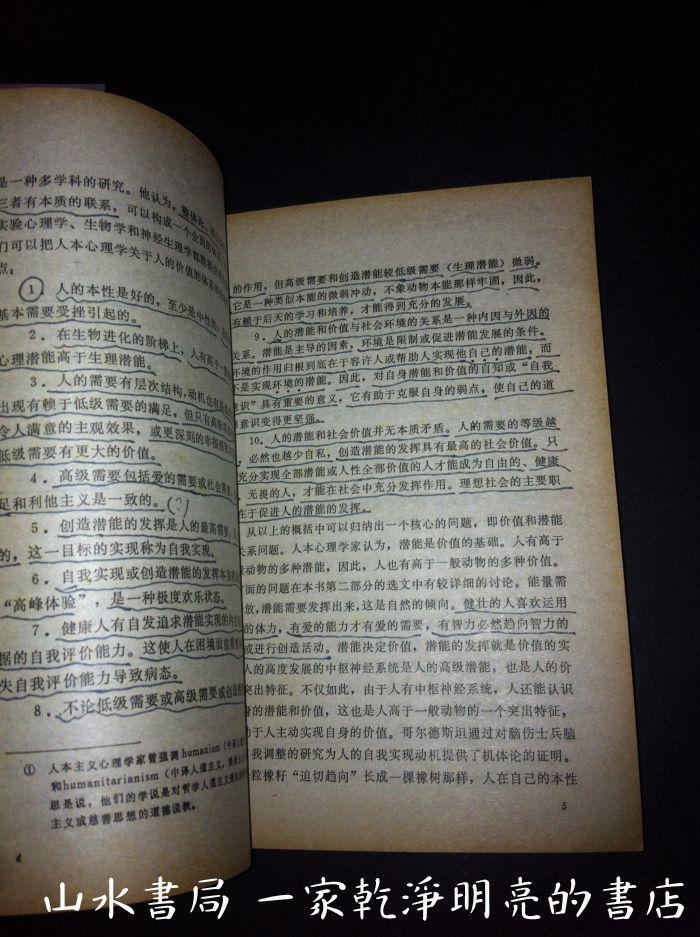 是一种多学科的研究。他认为，整体论、
三者有本质的联系，可以构成一个全面的
实验心理学、生物学和神经生理学都能
们可以把人本心理学关于人的价值的体系
点：
1．人的本性是好的，至少是中性的，
基本需要受挫引起的。
2．在生物进化的阶梯上，人有高于一
心理潜能高于生理潜能。
3．人的需要有层次结构，动机也有高
出现有赖于低级需要的满足，但只有高级需要
令人满意的主观效果，或更深刻的幸福感
低级需要有更大的价值。
4．高级需要包括爱的需要或社会需要，
足和利他主义是一致的。(？)
5．创造潜能的发挥是人的最高需要，
的，这一目标的实现称为自我实现。
6．自我实现或创造潜能的发挥本身
“高峰体验”，是一种极度欢乐状态。
7．健康人有自发追求潜能实现的内
据的自我评价能力。这使人在困境面前
失自我评价能力导致病态。
8．不论低级需要或高级需要或创造
① 人本主义心理学家曾强调humanism（中译人
和humanitarianism（中译人道主义，
思是说，他们的学说是对哲学人道主义
主义或慈善思想的道德说教。
4
的作用，但高级需要和创造潜能较低级需要（生理潜能）微弱。
它是一种类似本能的微弱冲动，不象动物本能那样牢固，因此，
有赖于后天的学习和培养，才能得到充分的发展。
9．人的潜能和价值与社会环境的关系是一种内因与外因的
关系。潜能是主导的因素，环境是限制或促进潜能发展的条件。
环境的作用归根到底在于容许人或帮助人实现他自己的潜能，而
不是实现环境的潜能。因此，对自身潜能和价值的自知或“自我
意识”具有重要的意义，它有助于克服自身的弱点，使自己的道
意识变得更坚强。
10．人的潜能和社会价值并无本质矛盾。人的需要的等级越
，必然也越少自私，创造潜能的发挥具有最高的社会价值。只
充分实现全部潜能或人性全部价值的人才能成为自由的、健康
、无畏的人，才能在社会中充分发挥作用。理想社会的主要职
在于促进人的潜能的发挥。
从以上的概括中可以归纳出一个核心的问题，即价值和潜能
关系问题。人本心理学家认为，潜能是价值的基础。人有高于
般动物的多种潜能，因此，人也有高于一般动物的多种价值。
方面的问题在本书第二部分的选文中有较详细的讨论。能量需
放，潜能需要发挥出来，这是自然的倾向。健壮的人喜欢运用
的体力，有爱的能力才有爱的需要，有智力必然趋向智力的
或进行创造活动。潜能决定价值，潜能的发挥就是价值的实
人的高度发展的中枢神经系统是人的高级潜能，也是人的价
突出特征。不仅如此，由于人有中枢神经系统，人还能认识
身的潜能和价值，这也是人高于一般动物的一个突出特征，
助于人主动实现自身的价值。哥尔德斯坦通过对脑伤士兵脑
我调整的研究为人的自我实现动机提供了机体论的证明。
粒橡籽“迫切趋向”长成一棵橡树那样，人在自己的本性
5
山水書局 一家乾淨明亮的書店